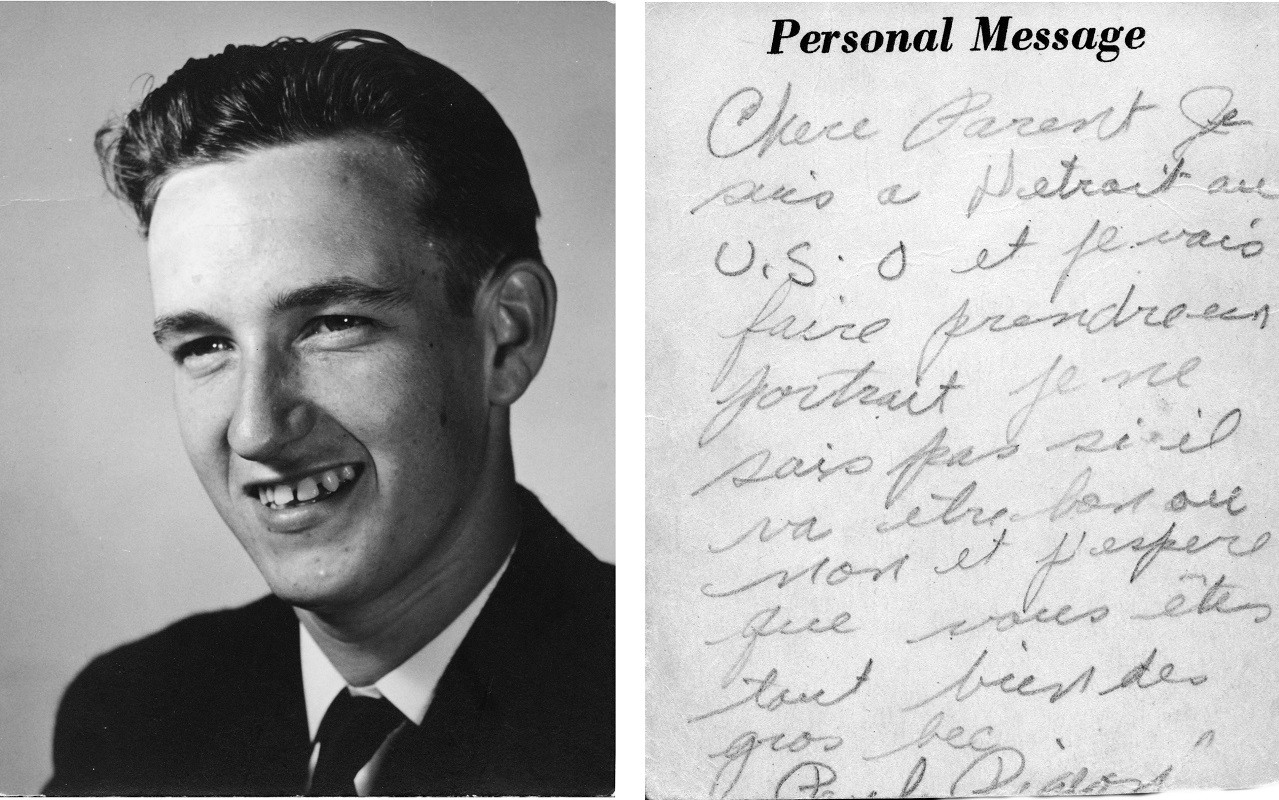 Personal Message
Chere Parent Je
suis a Detroit au
U.S.O et je vais
faire prendre un
portrait je ne
sais pas si il
va être bon ou
non et j'espere
que vous êtes
tout bien des
gros bec
Paul